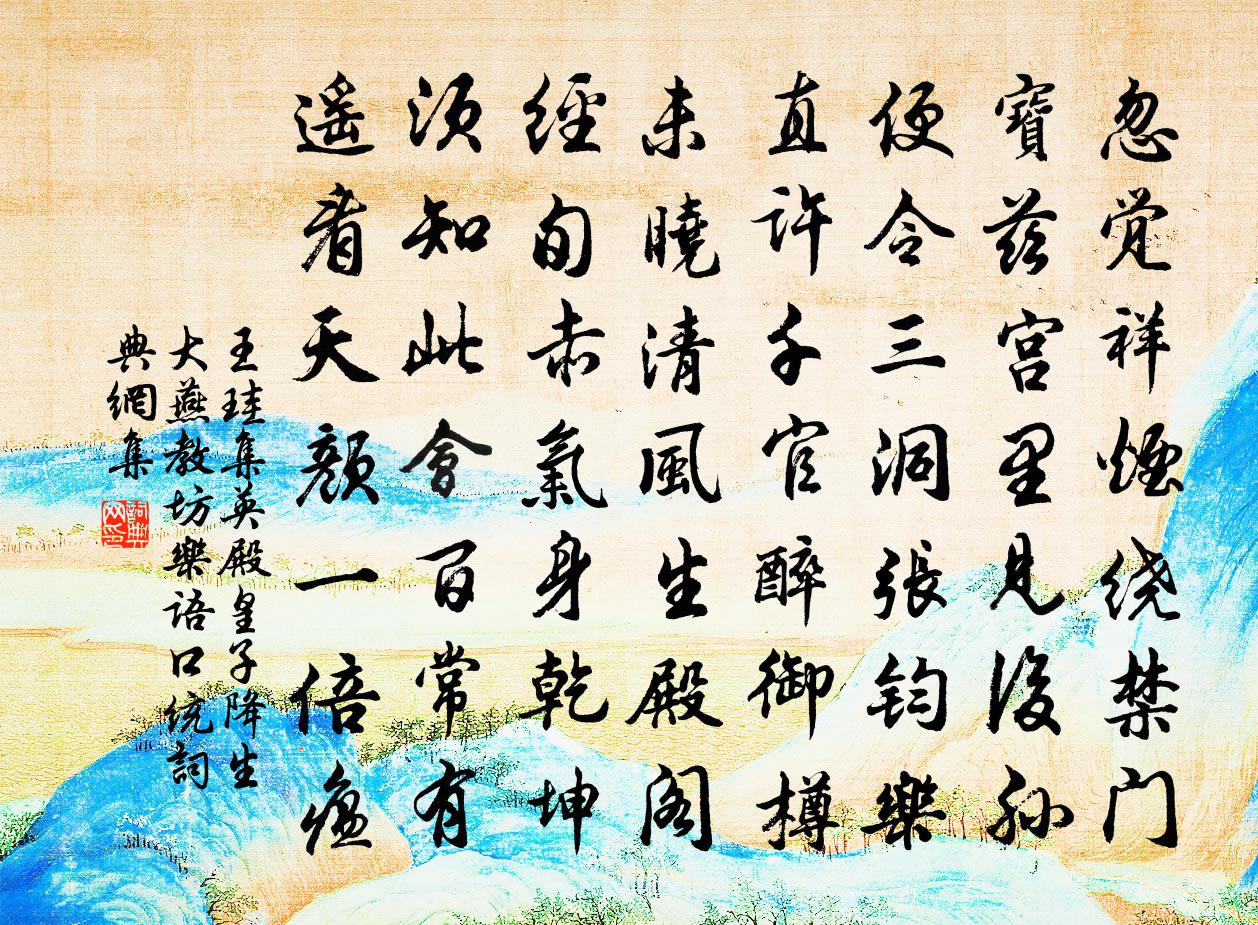 忽觉祥煙绕禁门
寶兹宫里見後孙
便令三洞張鈞樂
直许千官醉御樽
未曉清風生殿阁
經旬赤氣身乾坤
须知此會百常有
遥看天顔一倍温
王珪集英殿皇子降生
大燕教坊樂语口统詞
典網集